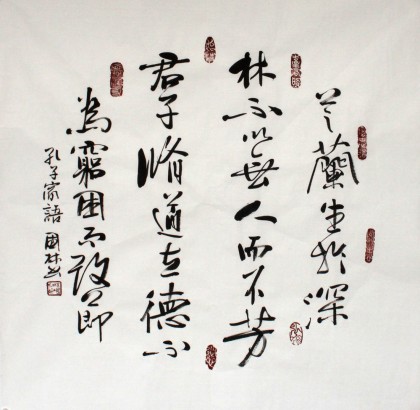 芝蘭生於深
林不以無人而不芳
君子脩道立德不
為窮困而改節
孔子家語 國林书